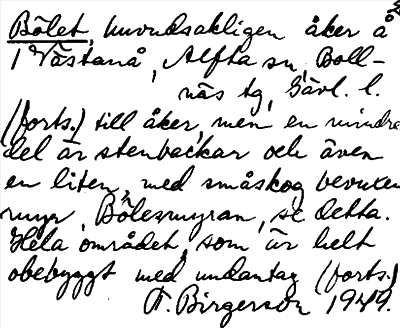 Bölet, huvudsakligen åker å
1 Västanå, Alfta sn, Boll-
näs tg, Gävl. l.
(forts.) till åker, men en mindre
del är stenbackar och även
en liten, med småskog bevuxen
myr, Bölesmyran, se detta.
Hela området, som är helt
obebyggt med undantag (forts.)
F. Birgerson 1949.